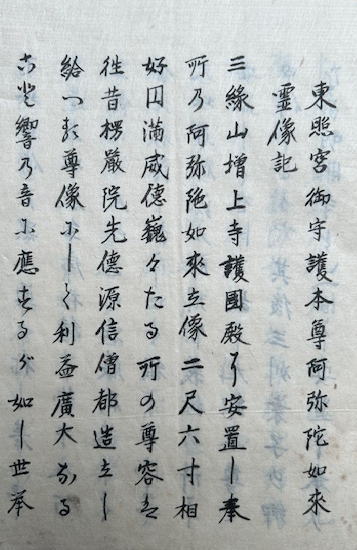 東照宮御守護本尊阿弥陀如來
霊像記
三縁山増上寺護國殿ニ安置し奉
所乃阿弥陁如來立像二尺六寸相
好円満威徳巍々たる所の尊容は
徃昔楞厳院先徳源信僧都造立し
給つる尊像にして利益廣大なる
こと響乃音に應するが如し世挙